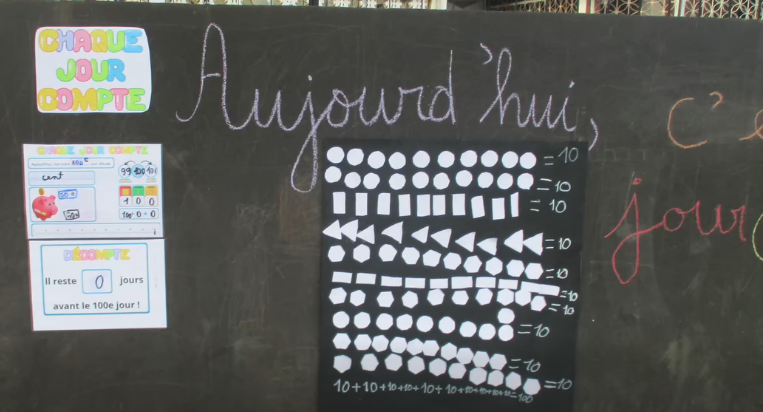 CHAQUE
JOUR
COMPTE
Aujourd'hui,
c'e
jour
CHAQUE JOUR COMPTE
cent
99 100 101
1 0 0
100 + 0 + 0
DÉCOMPTE
Il reste 0 jours
avant le 100e jour !
= 10
= 10
= 10
= 10
= 10
= 10
= 10
= 10
= 10
= 10
10+10+10+10+10+10+10+10+10+10=100